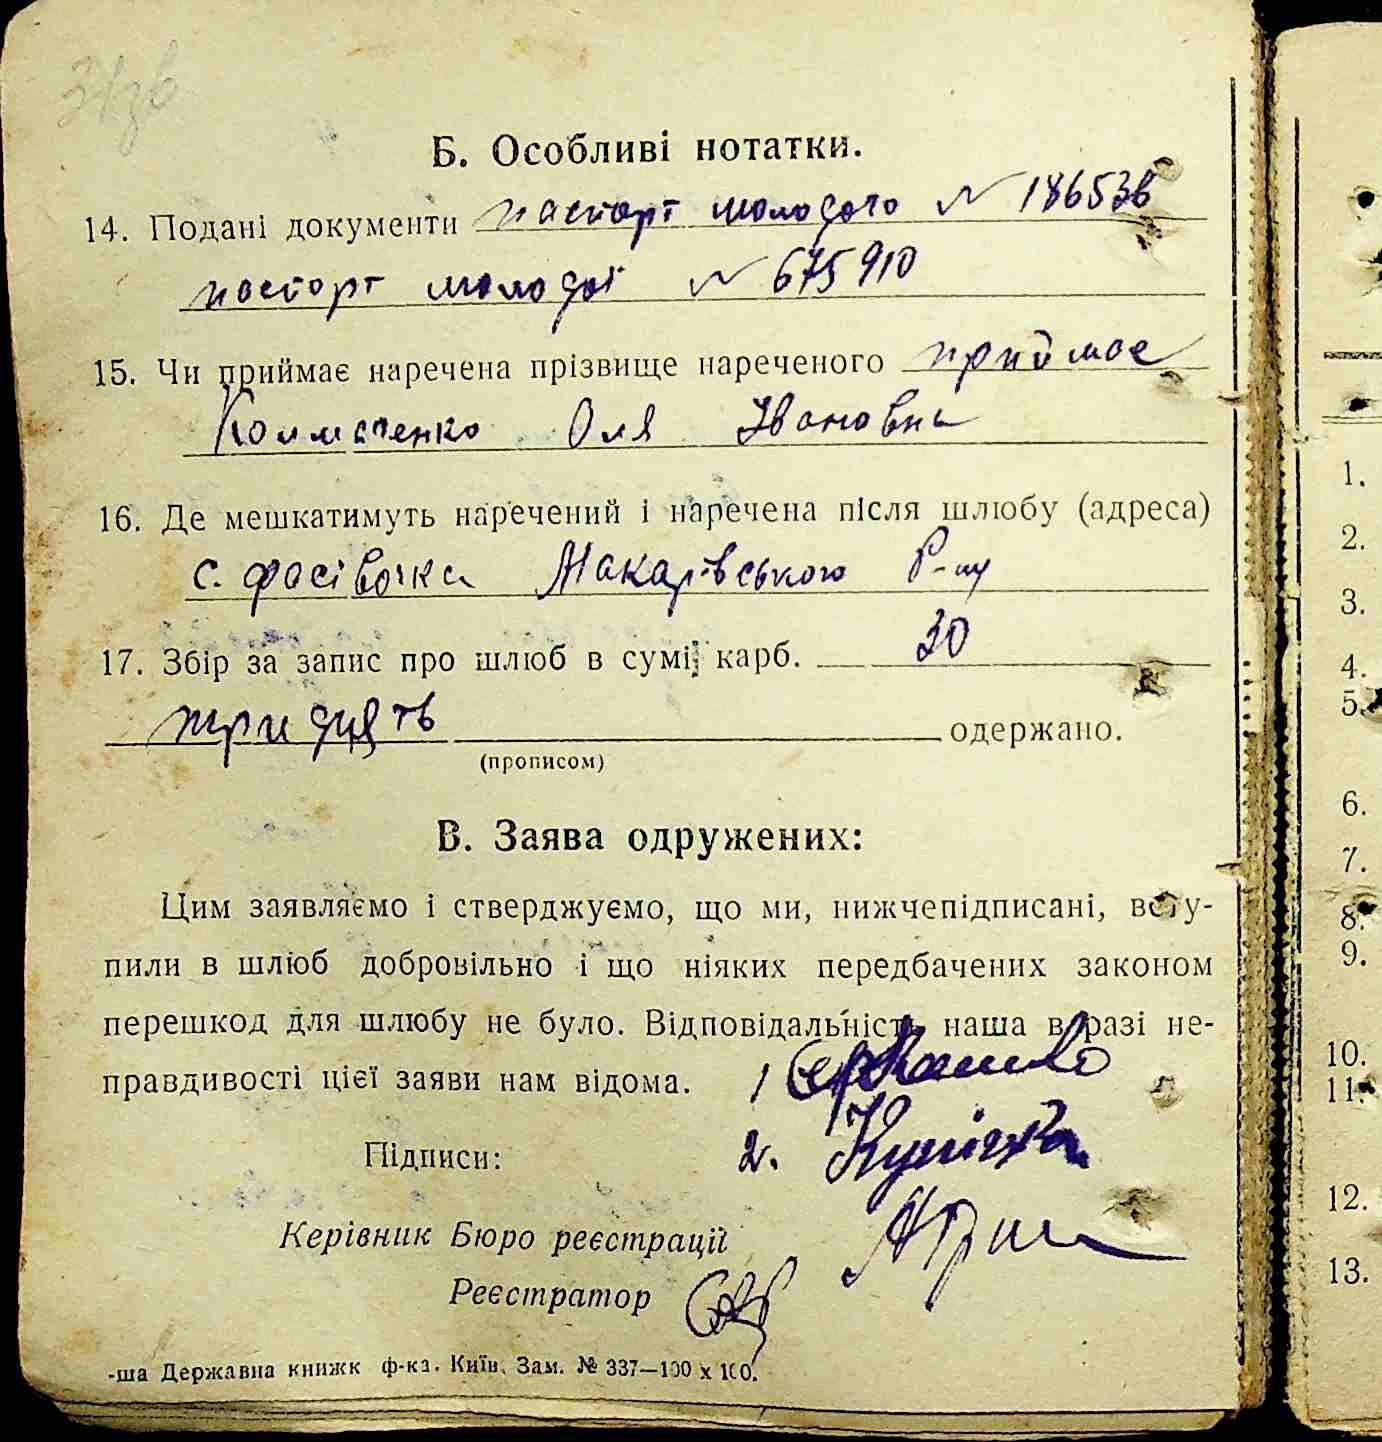 Б. Особливі нотатки.
14. Подані документи паспорт молодого № 186538
паспорт молодої № 675910
15. Чи приймає наречена прізвище нареченого приймає
Оля Івановна
16. Де мешкатимуть наречений і наречена після шлюбу (адреса)
с. Фасівочка Макарівського Р-ну
17. Збір за запис про шлюб в сумі, карб. 30
тридцять одержано.
(прописом)
В. Заява одружених:
Цим заявляємо і стверджуємо, що ми, нижчепідписані, всту-
пили в шлюб добровільно і що ніяких передбачених законом
перешкод для шлюбу не було. Відповідальність наша в разі не-
правдивості цієї заяви нам відома. 1
Підписи: 2.
Керівник Бюро реєстрації
Реєстратор
-ша Державна книжк ф-ка. Київ. Зам. № 337—100 х 100.
1.
2.
3.
4.
5.
6.
7.
8.
9.
10.
11.
12.
13.